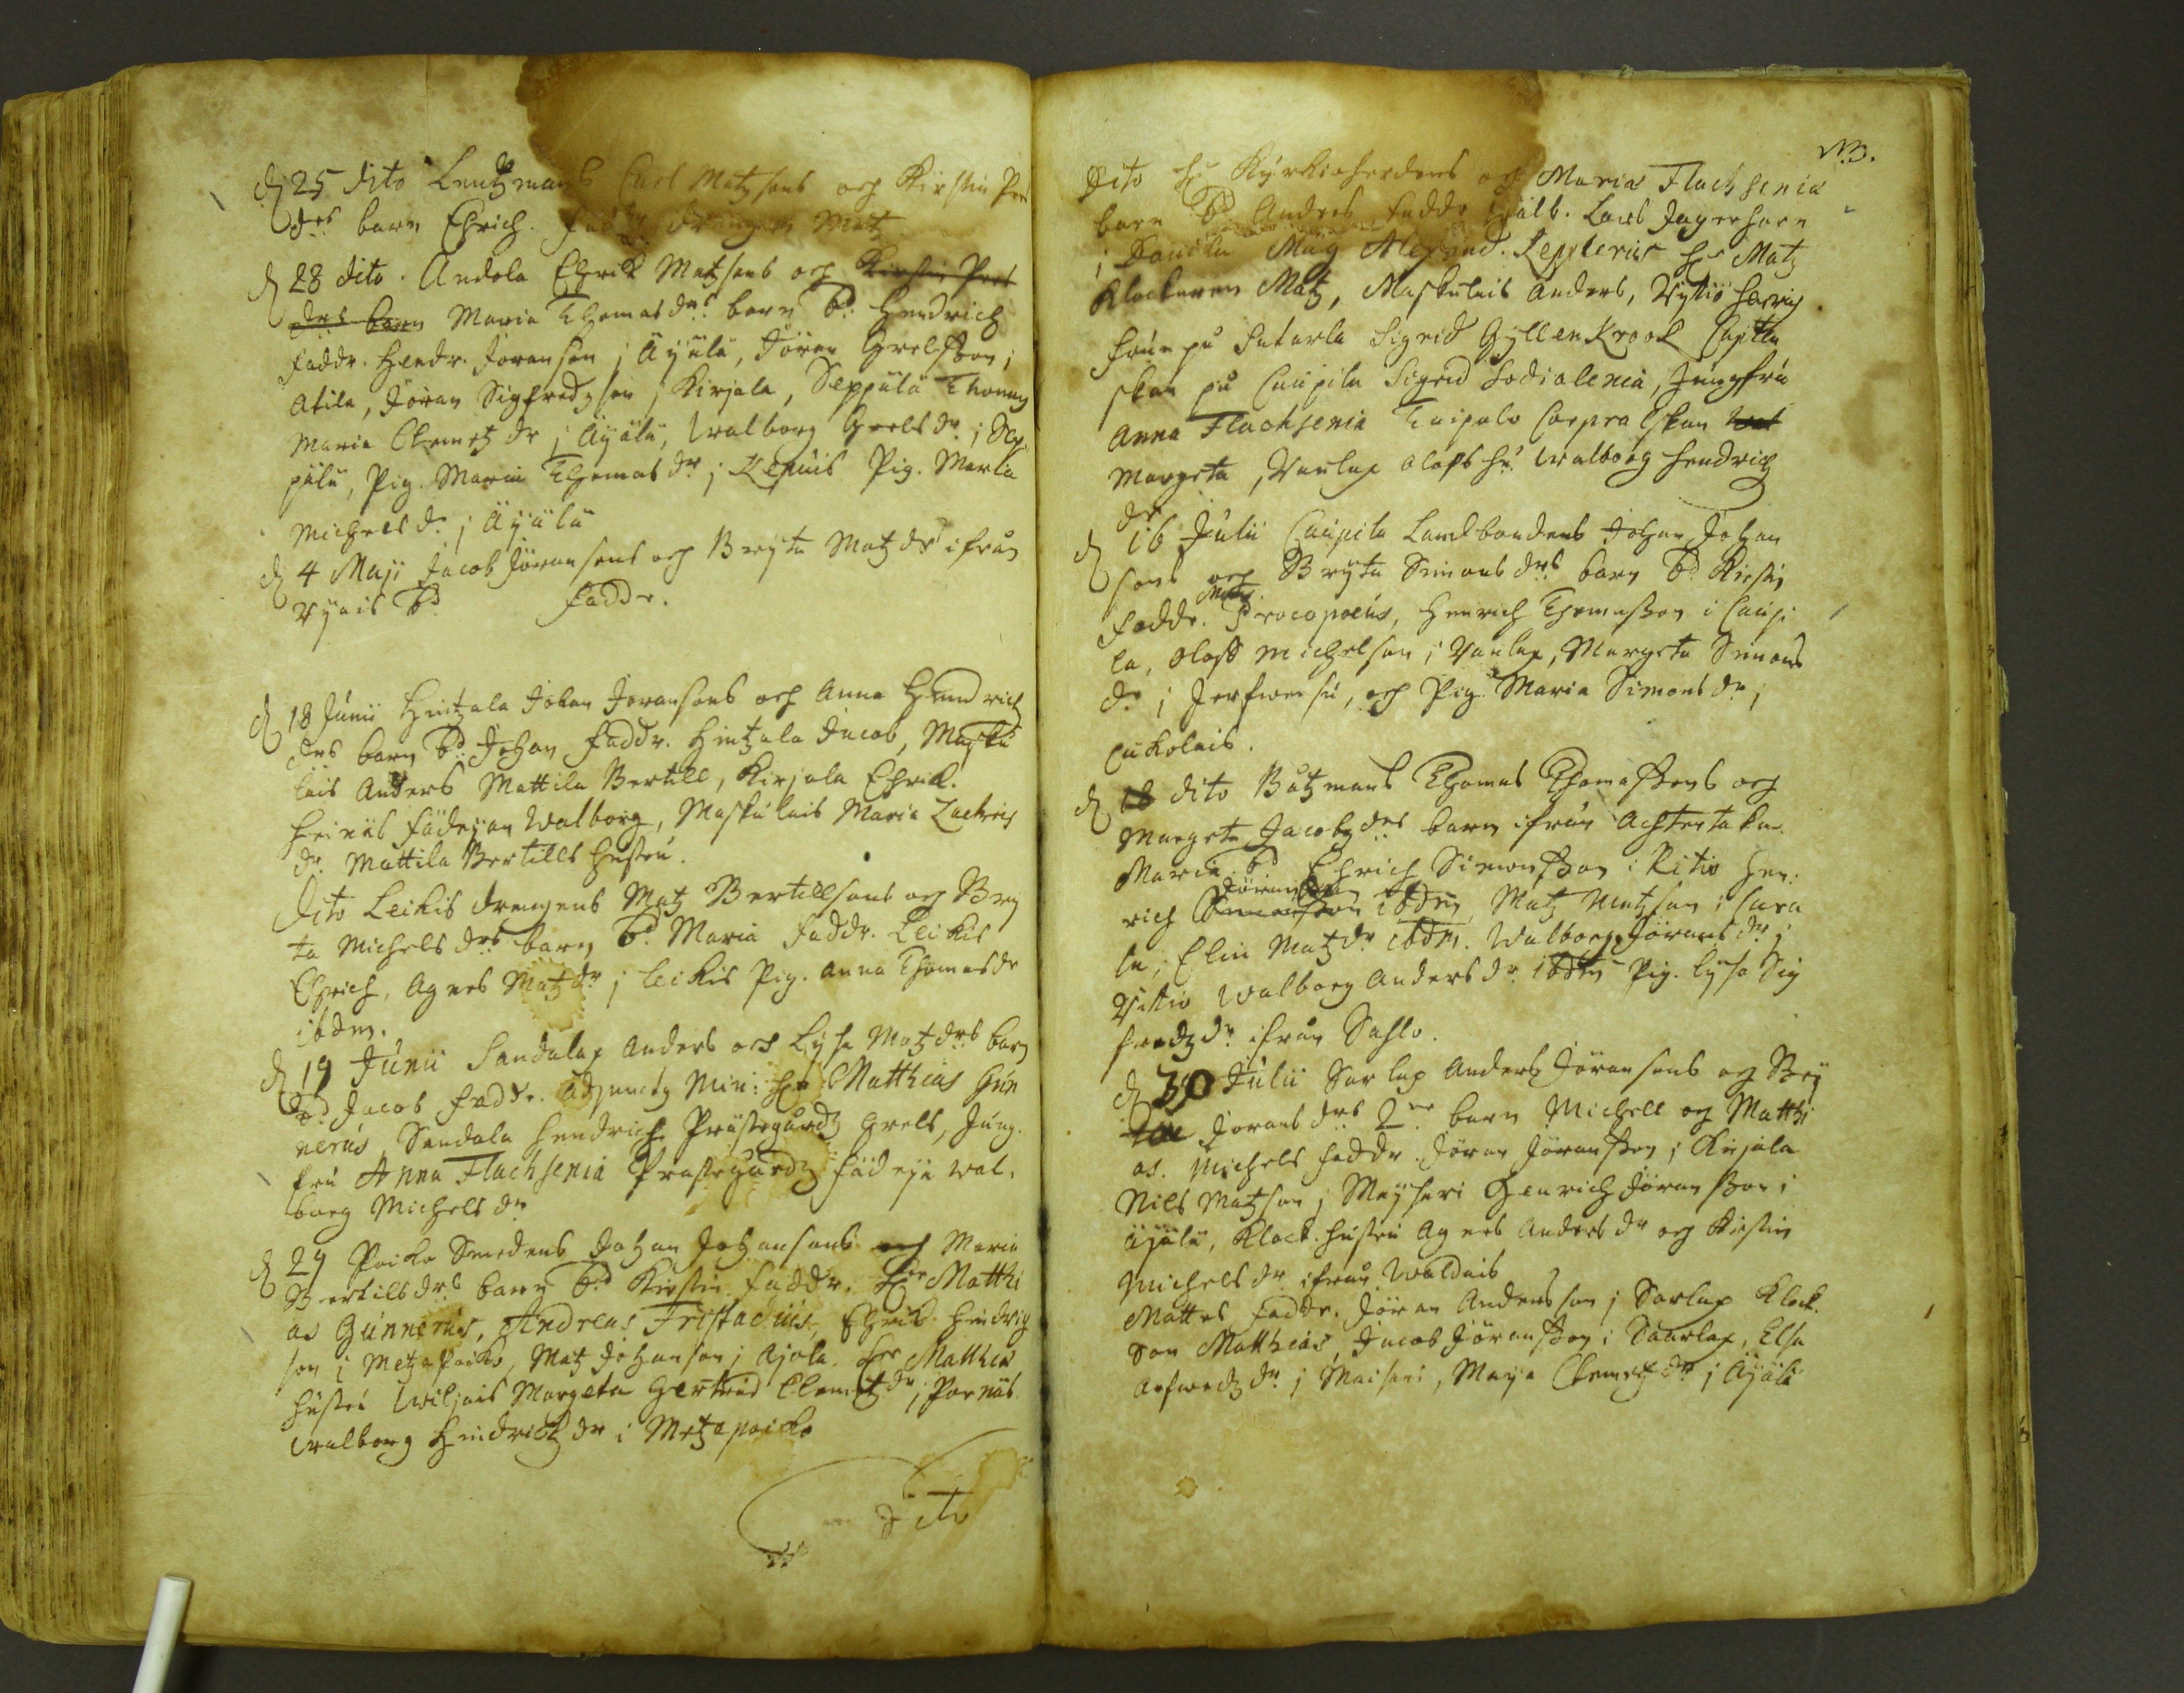 d 25 dito Lentzmans Carl Matzsons och Kirstin Per
drs barn Ehrich. faddr drengen Matz
d 28 dito. Andola Ehrik Matzsons och Kirstin Pers
drs barn Maria Thomasdrs barn bd Hendrich
faddr. Hendr. Joranson j Äijälä, Jöran Grelsson j
Atila, Jöran Sigfredzson j Kirjala, Seppälä Thomas
Maria Clemetz dr j Äijälä, Walborg Grelsdr j Sep
pälä, Pig. Maria Thomasdr j Lepuis Pig. Maria
Michelsd. j Äijälä
d 4 Maji Jacob Jöransons och Bryta Matzdrs ifrån
bd faddr.
d 18 Junii Hintzala Johan Joransons och Anna Hendrich
drs barn bd Johan faddr. Hintzala Jacob, Masku
lais Anders Mattila Bertill, Kirjala Ehrik.
Heinis fädeijan Walborg, Maskulais Maria Zachris
dr. Mattila Bertills hustru.
Dito Leikis drengens Matz Bertillsons och Bry
ta Michels drs barn bd Maria faddr. Leikis
Ehrich, Agnes Matzdr j Leikis Pig. Anna Thomasdr
ibdm.
d 19 Junii Sandalax Anders och Lysa Matzdrs barn
bd Jacob faddr. Adjunctg Min: Hr Matthias Gun
nerus Sandala Hendrich Prästegårdz Grels, Jung.
fru Anna Flachsenia Prästegårdz fädeija Wal.
borg Michelsdr
d 29 Poiko Smedens Johan Johansons och Maria
Bertilsdrs barn bd Kirstin faddr. Hr Matthi
as Gunnerus, Andreas Tristadius, Ehrik Hindrig
son i Metzäpoiko, Matz Johanson j Ajola. Hr Matthia
hustru Wiljais Margeta Gertrud Clemetzdr j Pernäs.
Walborg Hindrichzdr i Metzäpoiko
Dito
NB.
Dito Hr Kyrkioherdens och Maria Flachsenia
barn bd Anders faddr Wälb. Lars Jagerhorn
j Mag Alexand. Lepplerus Hr Matz
Klockaren Matz, Maskulais Anders,
frun på Sutarla Sigrid Gyllenkrook Capitein
skan på Caupila Sigrid Sodialenia, Jungfru
Anna Flachsenia Taipalo Corpralskan Wal
Margeta, Vanlax Olofs hu: Walborg Hendrich
dr
d 16 Julii Caupila Landbondens Johan Johan
sons och Bryta Simonsdrs barn bd Kirstin
faddr. Matz Procopoeus, Henrich Thomasson i Caupi
la, Oloff Michelson j Vanlax, Margeta Simons
dr j Jerfwensu, och Pig. Maria Simonsdr j
Cukolais.
d 18 dito Båtzmans Thomas Thomassons och
Margeta Jacobzdrs barn ifrån Achtertaku
Maria bd Ehrich Simonsson i Ritio Hen:
rich Simonsson Jöransson ibdm, Matz Matzson i Cara
la, Elin Matzdr ibdm. Walborg Jöransdr j
Walborg Andersdr ibdm Pig. Lysa Sig
fredzdr ifrån Sahlo.
d 30 Julii Sarlax Anders Jöransons och Bry
ta Joransdrs 2ne barn Michell och Matthi
as. Michels faddr. Jöran Jöransson j Kirjala
Nils Matzson j Maijseri Henrich Jöransson i
Äijälä, Klock. hustru Agnes Andersdr och Kirstin
Michelsdr ifrån Waldais
Mattes faddr. Jöran Andersson j Sarlax Klock.
Son Matthias, Jacob Jöransson i Saarlax, Elsa
Arfwedzdr j Maiseri, Marja Clemetzdr j Äijälä